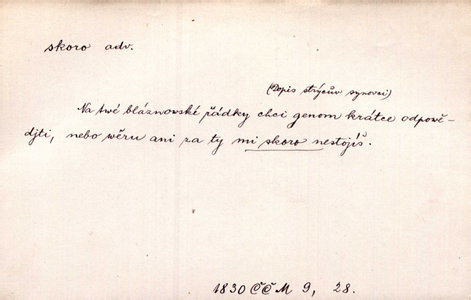 skoro adv.
(Dopis strýcův synovci)
Na twé bláznowské řádky chci genom krátce odpowě-
djti, nebo wěru ani za ty mi skoro nestojjš.
1830 ČČM 9, 28.